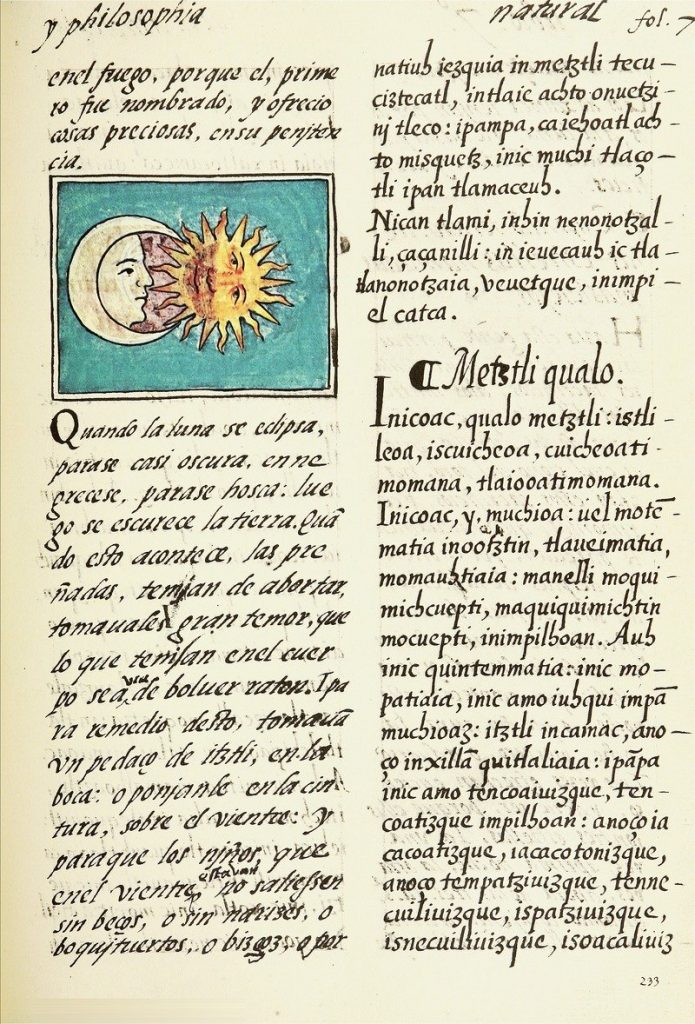 y philosophia
natural
fol. 7
enel fuego, porque el, prime
ro fue nombrado, y ofrecio
cosas preciosas, en su penjten
cia.
Quando la luna se eclipsa,
parase casi oscura, en ne
grecese, parase hosca: lue
go se escurece la tierra. Quā
do esto acontece, las pre
ñadas, temjan de abortar,
tomauales gran temor, que
lo que temjan enel cuer
po se aujā de boluer raton. I pa
ra remedio desto, tomauā
vn pedaço de itztli, en la
boca: o ponjanle en la cin
tura, sobre el vientre: y
para que los njños, que
enel vientre estauan no saliessen
sin beços, o sin narizes, o
boqujtuertos, o bizcos, o por
natiuh iezquia in metztli tecu–
ciztecatl, intlaic achto onuetzi–
nj tleco: ipampa, ca iehoatl ach–
to misquetz, inic muchi tlaço–
tli ipan tlamaceuh.
Nican tlami, inhin nenonotzal–
li, çaçanilli: in ieuecauh ic tla–
tlanonotzaia, veuetque, inimpi–
el catca.
¶ Metztli qualo.
Inicoac, qualo metztli: istli–
leoa, iscuicheoa, cuicheoati–
momana, tlaiooatimomana.
Inicoac, y, muchioa: uel motē–
matia inootztin, tlaueimatia,
momauhtiaia: manelli moqui–
michcuepti, maquiquimichtin
mocuepti, inimpilhoan. Auh
inic quintemmatia: inic mo–
patiaia, inic amo iuhqui impā
muchioaz: itztli incamac, ano–
ço inxillā quitlaliaia: ipāpa
inic amo tencoaiuizque, ten–
coatizque impilhoan: anoço ia
cacoatizque, iacacotonizque,
anoço tempatziuizque, tenne–
cuiliuizque, ispatziuizque,
isnecuiliuizque, isoacaliuiz
233